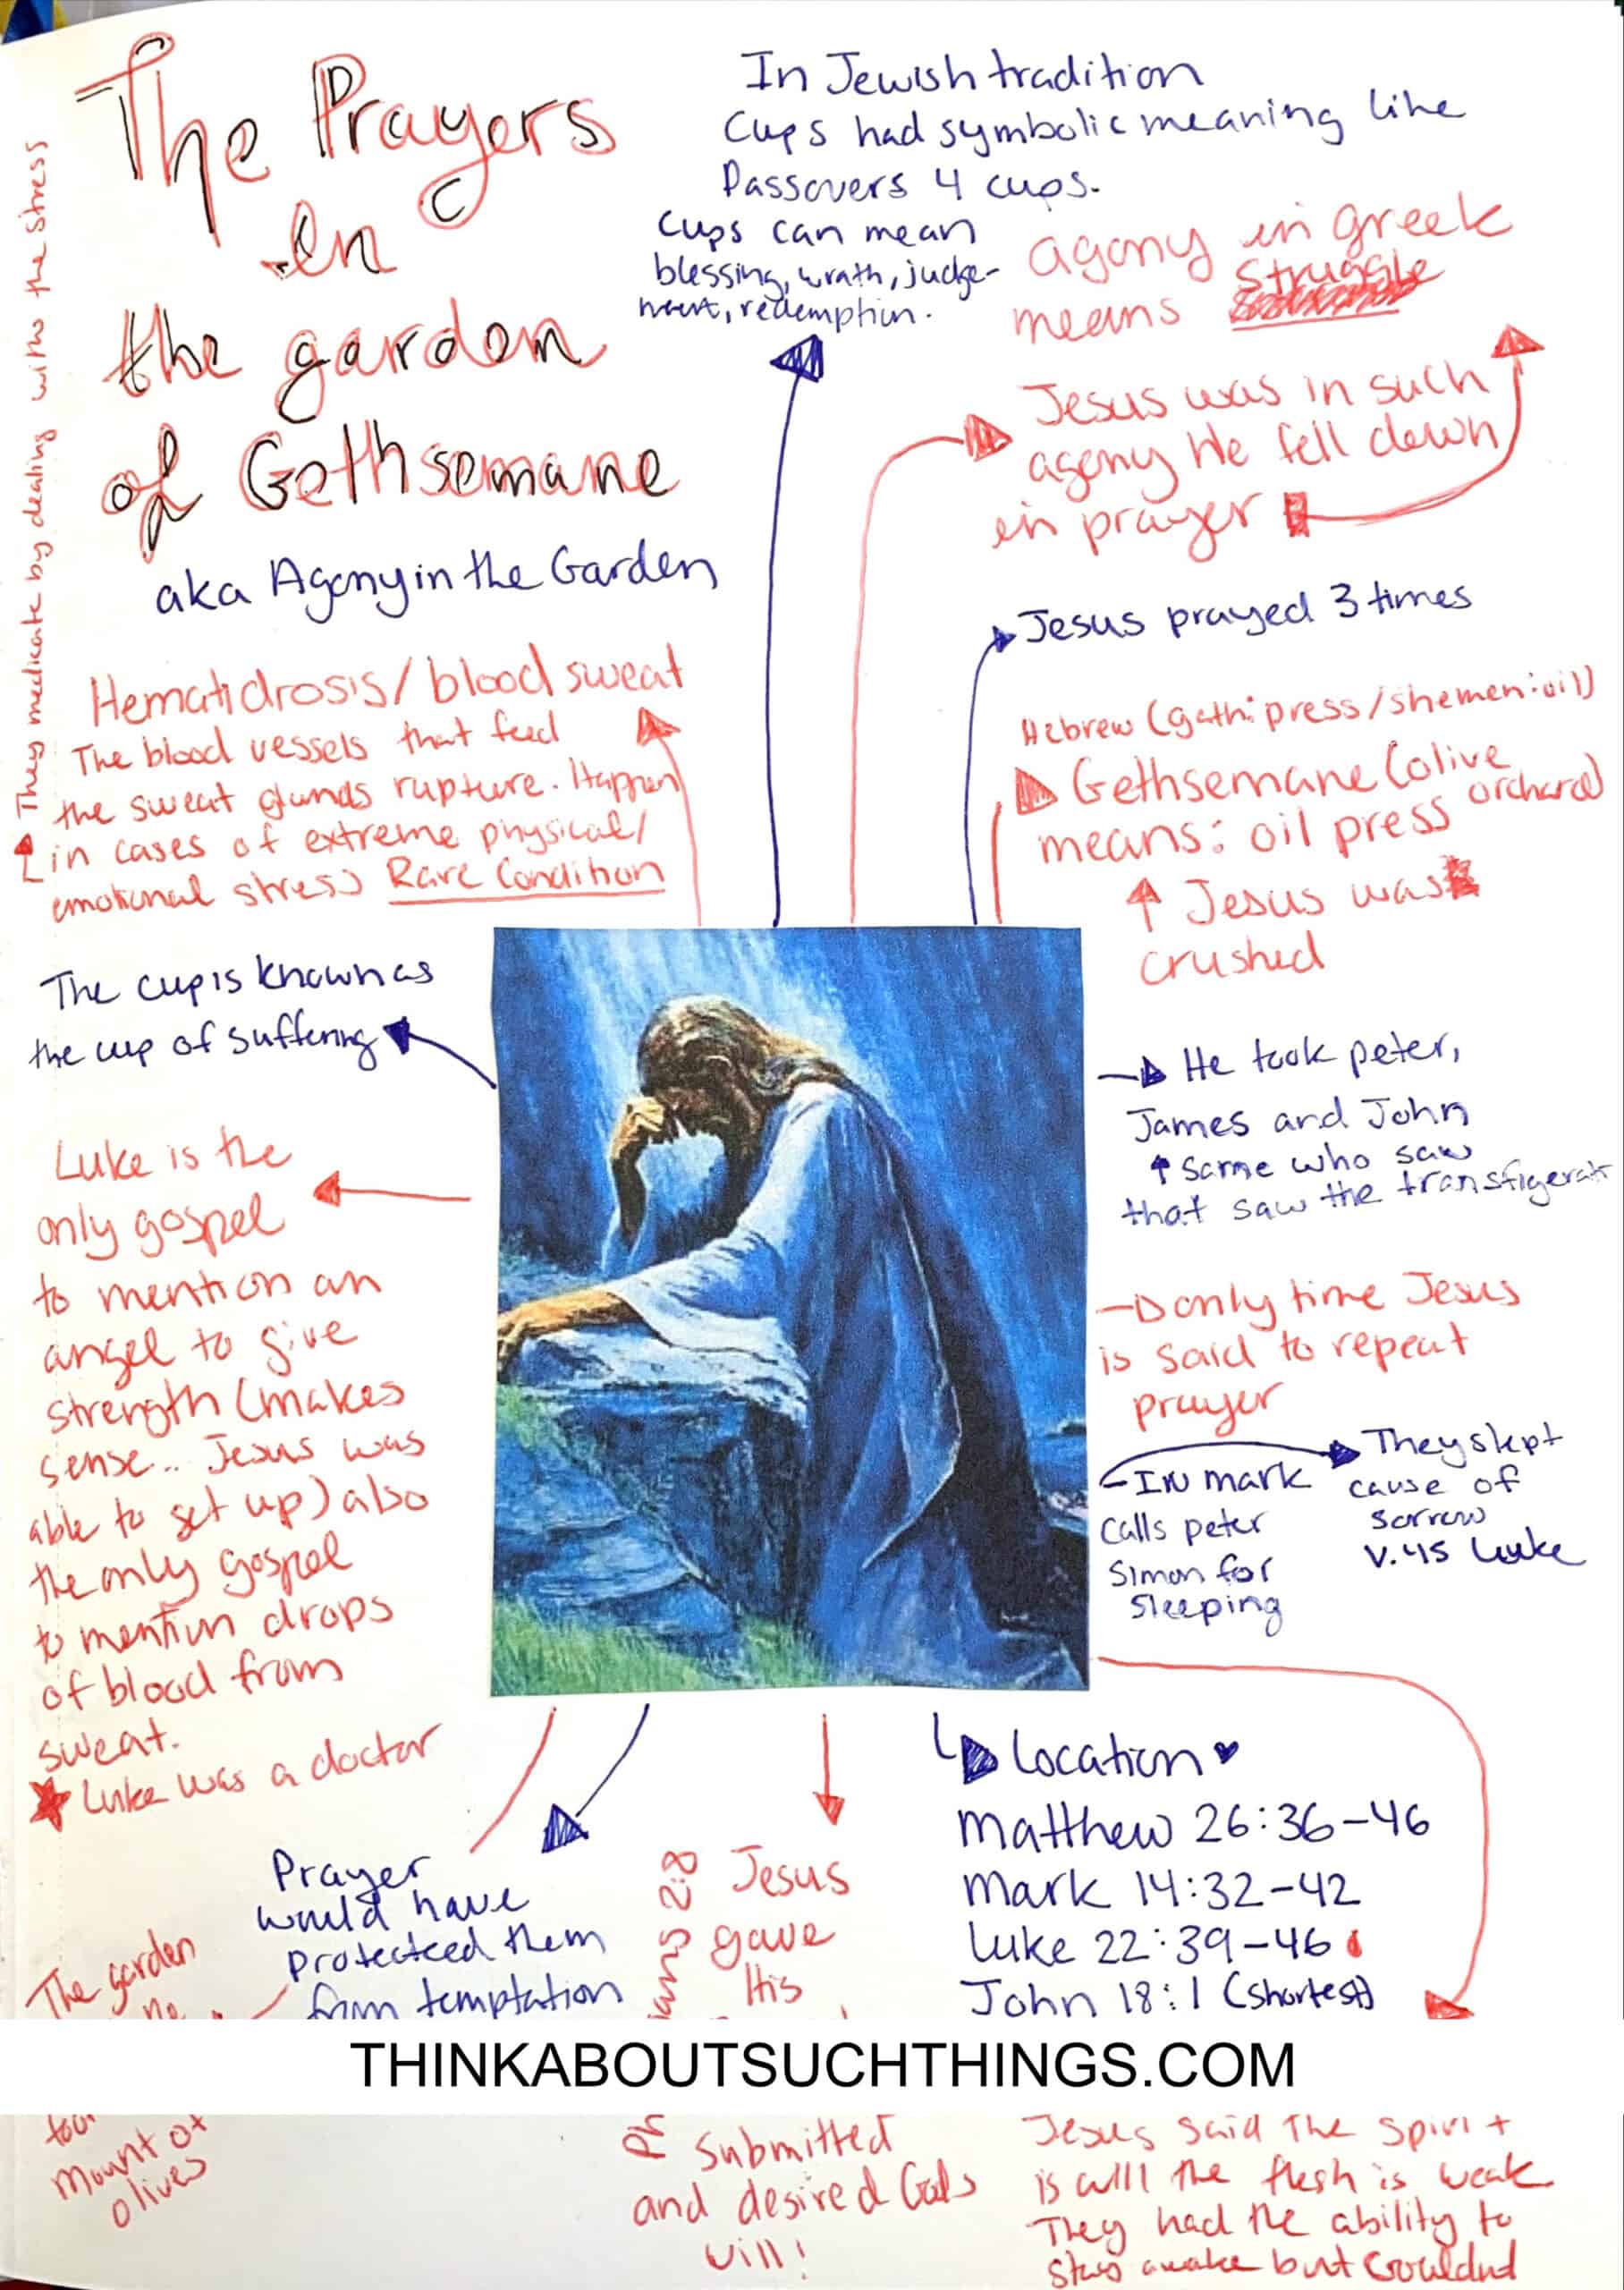 The Prayers
In
the garden
of Gethsemane
aka Agony in the Garden
In Jewish tradition
Cups had symbolic meaning like
Passovers 4 cups.
Cups can mean
blessing, wrath, judge-
ment, redemption.
agony in greek
means struggle
Jesus was in such
agony He fell down
in prayer
Jesus prayed 3 times
Hebrew (gath: press/shemen: oil)
Gethsemane (olive
orchard)
means: oil press
Jesus was
crushed
They medicate by dealing with the stress
Hematidrosis/blood sweat
The blood vessels that feed
the sweat glands rupture. Happen
in cases of extreme physical/
emotional stress Rare Condition
The cup is known as
the cup of suffering
Luke is the
only gospel
to mention an
angel to give
strength (makes
sense.. Jesus was
able to get up) also
the only gospel
to mention drops
of blood from
sweat.
Luke was a doctor
He took peter,
James and John
same who saw
that saw the transfigerat
only time Jesus
is said to repeat
prayer
In mark
calls peter
Simon for
sleeping
They slept
cause of
sorrow
v.45 Luke
Location
Matthew 26:36-46
Mark 14:32-42
Luke 22:39-46
John 18:1 (shortest)
Prayer
would have
protecteed them
from temptation
The garden
Jesus
gave
His
2:8
THINKABOUTSUCHTHINGS.COM
Mount of
olives
submitted
and desired Gods
will!
Jesus said The spirit
is will the flesh is weak
They had the ability to
stay awake but couldnd